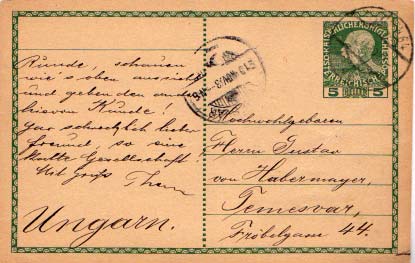 Runde, schauen
wie's oben aussieht
und geben den
lieven Kunde!
Gar schrecklich lieber
Freund, so eine
kalte Gesellschaft!
Mit Gruß
Ungarn.
5 5
Hochwohlgeboren
Herrn Gustav
von Habermayer,
Temesvár,
Fröbelgasse 44.